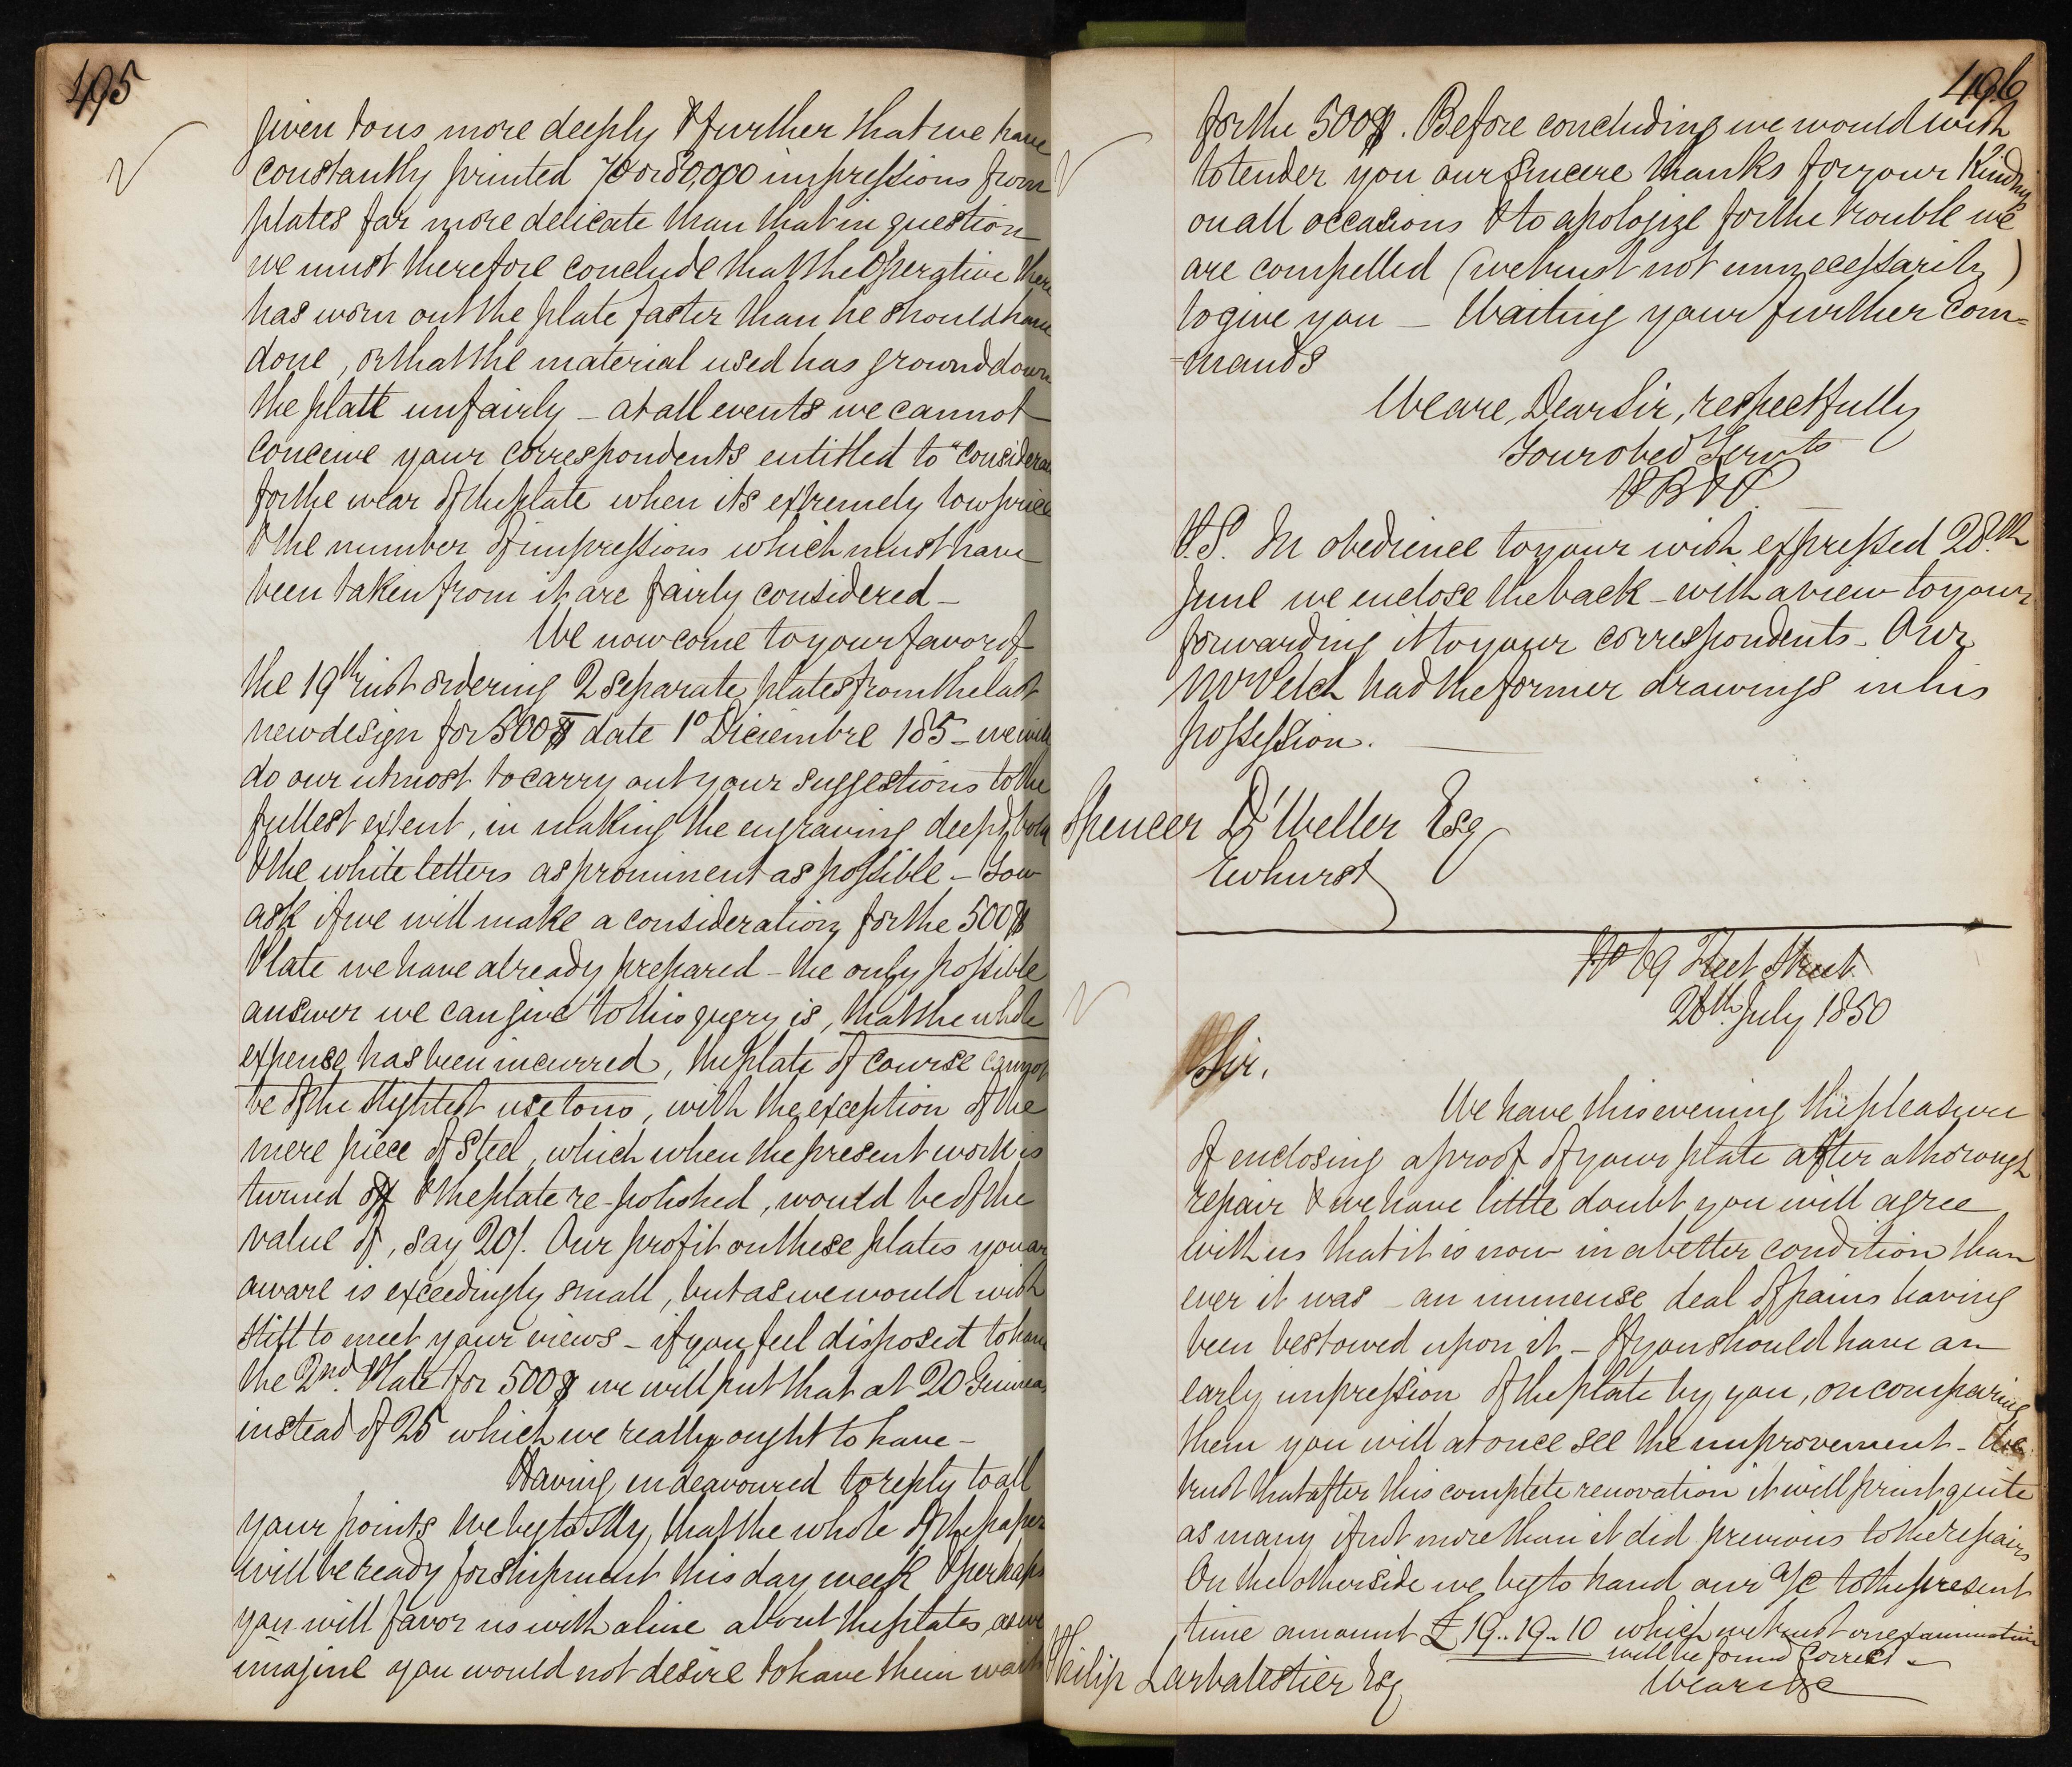 495
given to us more deeply & further that we have
constantly printed 70 or 80,000 impressions from
plates far more delicate than that in question
we must therefore conclude that the Operative there
has worn out the plate faster than he should have
done, or that the material used has ground down
the plate unfairly – at all events we cannot
conceive your correspondents entitled to "considera
for the wear of the plate when its extremely low price
& the number of impressions which must have
been taken from it are fairly considered –
We now come to your favor of
the 19th inst ordering 2 separate plates from the last
new design for 500$ date 1º Diciembre 185– we will
do our utmost to carry out your suggestions to the
fullest extent, in making the engraving deep & bold
& the white letters as prominent as possible – You
ask if we will make a consideration for the 500$
Plate we have already prepared – the only possible
answer we can give to this query is, that the whole
expense has been incurred, the plate of course cannot
be of the slightest use to us, with the exception of the
mere piece of Steel, which when the present work is
turned off & the plate re-polished, would be of the
value of, say 20/. Our profit on these plates you are
aware is exceedingly small, but as we would wish
still to meet your views – if you feel disposed to have
the 2nd. Plate for 500$ we will put that at 20 Guineas
instead of 25 which we really ought to have –
Having endeavoured to reply to all
your points We beg to say, that the whole of the paper
will be ready for shipment this day week & perhaps
you will favor us with a line about the plates, as we
imagine you would not desire to have them wait
496
for the 500$. Before concluding we would wish
to tender you our sincere thanks for your Kindness
on all occasions & to apologize for the trouble we
are compelled (we trust not unnecessarily)
to give you – Waiting your further Com=
=mands
We are, Dear Sir, respectfully
Your obed Servts
PB&P
P.S. In obedience to your wish expressed 28th
June we enclose the back – with a view to your
forwarding it to your correspondents – Our
Mr Petch had the former drawings in his
possession.
Spencer D. Weller Esq
Ewhurst
No 69 Fleet Street
26th July 1850
Sir,
We have this evening the pleasure
of enclosing a proof of your plate after a thorough
repair & we have little doubt you will agree
with us that it is now in a better condition than
ever it was – an immense deal of pains having
been bestowed upon it – If you should have an
early impression of the plate by you, on comparing
them you will at once see the improvement – We
trust that after this complete renovation it will print quite
as many if not more than it did previous to the repairs
On the other side we beg to hand our a/c to the present
time amount £19..19..10 which we trust on examination
will be found Correct –
We are &c
Philip Larbalestier Esq